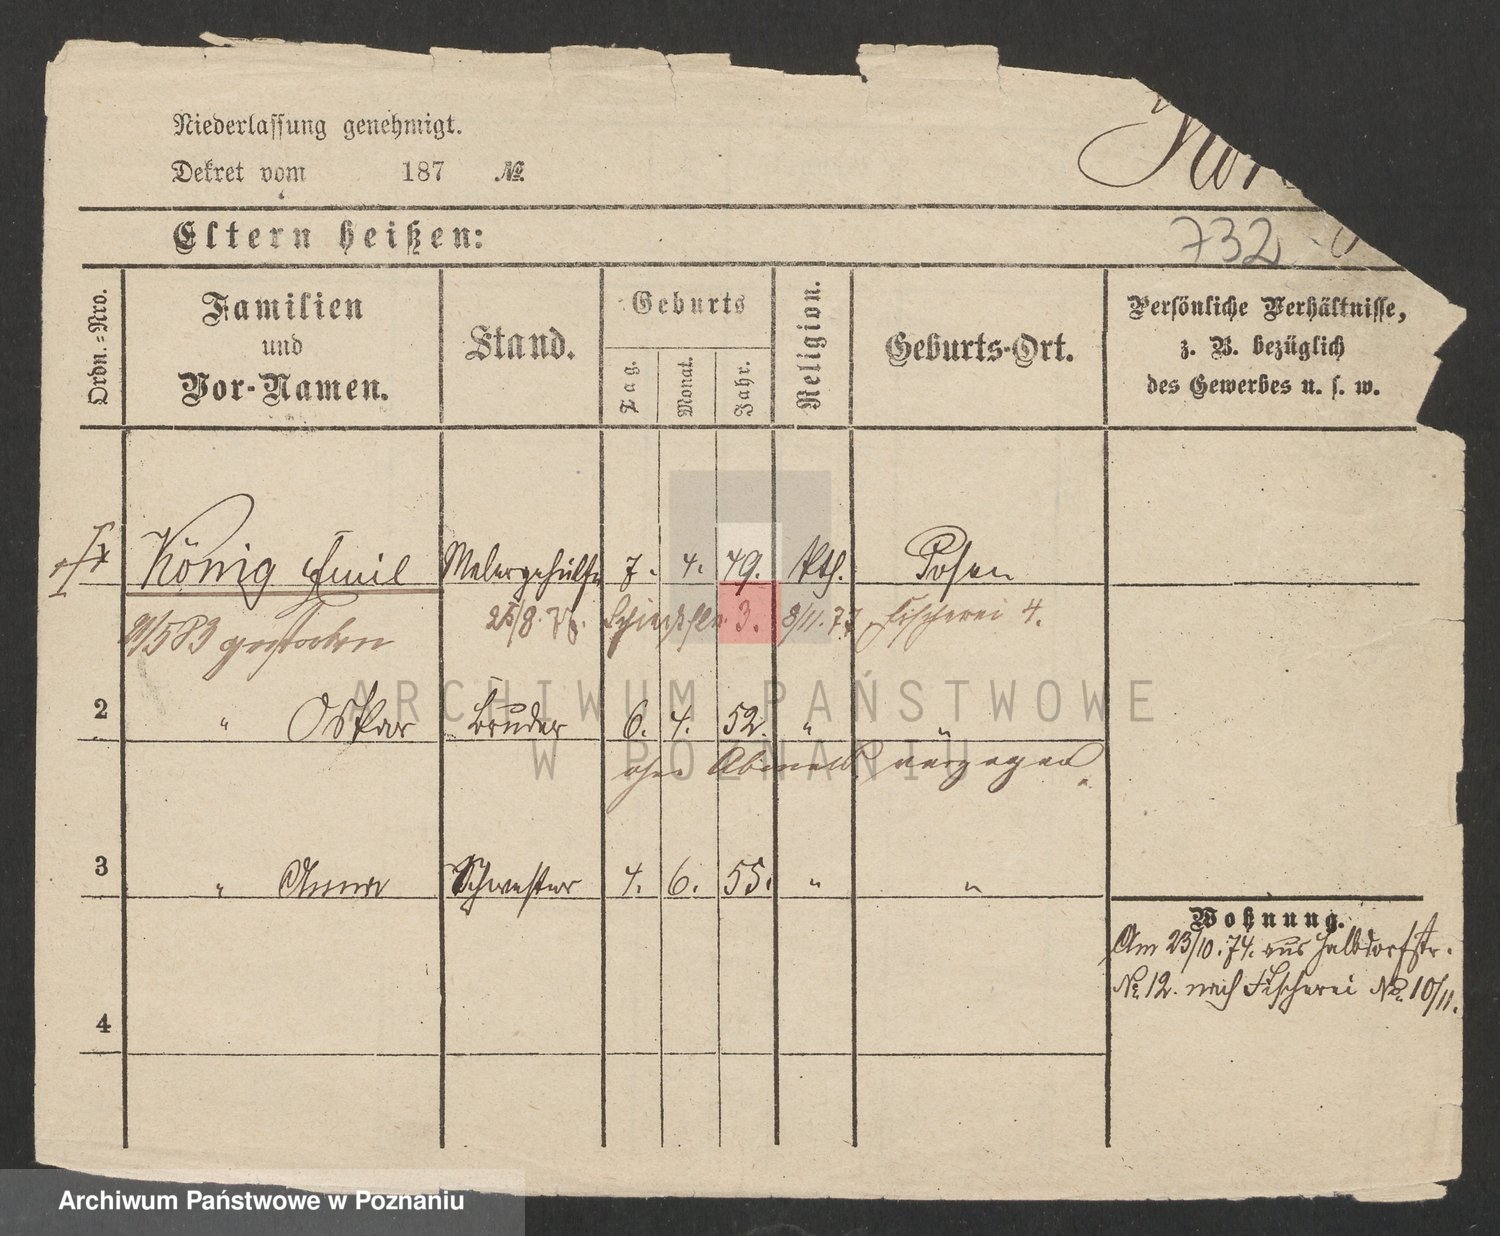 Niederlassung genehmigt.
Dekret vom 187 №
Kön
Eltern heißen:
732
Ordn.-Nro.
Familien und Vor-Namen.
Stand.
Geburts
Tag.
Monat.
Jahr.
Religion.
Geburts-Ort.
Persönliche Verhältnisse, z. B. bezüglich des Gewerbes u. s. w.
König Emil Malergehülfe 7. 4. 49. kth. Posen
gestorben 25/8. 75. 3. 8/11. 77 Fischerei 4.
2 " Oskar Bruder 6. 4. 52. " "
ohne Abmeld. verzogen
3 " Anna Schwester 4. 6. 55. " "
Wohnung.
Am 23/10. 74. aus Halbdorfstr.
№ 12. nach Fischerei № 10/11.
4
ARCHIWUM PAŃSTWOWE
W POZNANIU
Archiwum Państwowe w Poznaniu